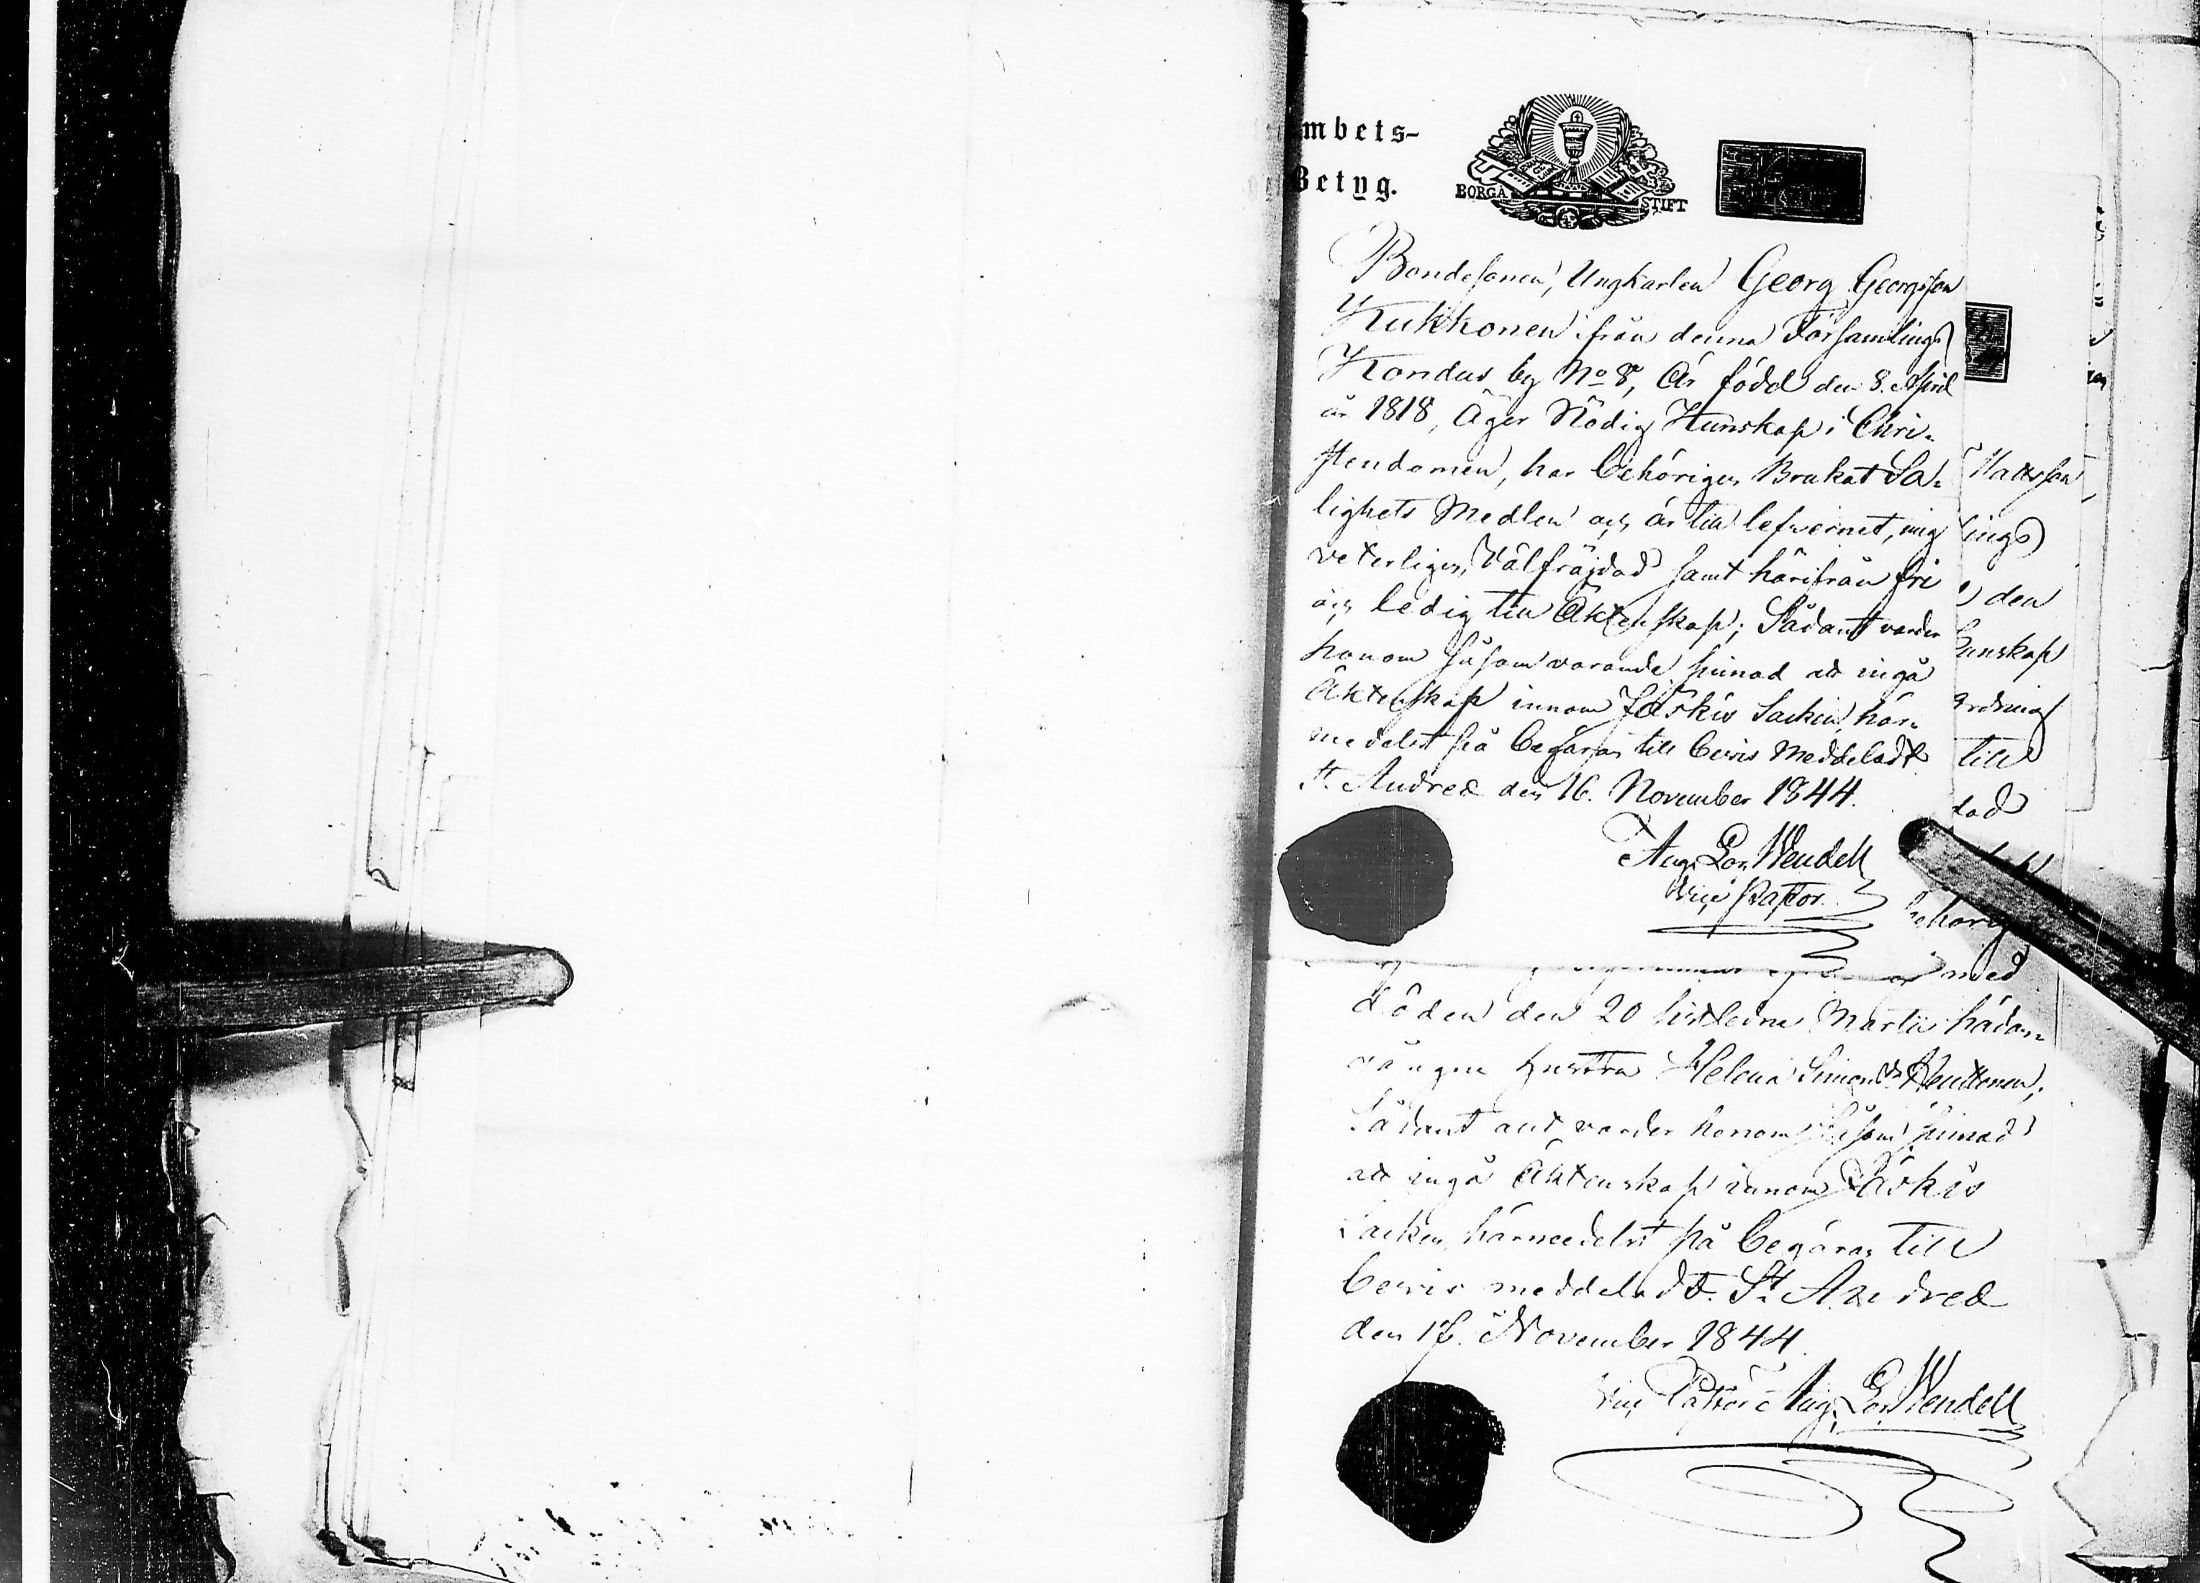 mbets-
Betyg.
BORGÅ STIFT
Bondesonen, Ungkarlen Georg Georgsson
Kukkonen från denna Församlings
Kondus by No 8, Är född den 8. April
år 1818, Äger Nödig Kunskap i Chri-
stendomen, har behörigen Brukat Sa-
lighets Medlen och är till lefvernet, mig
veterligen, Välfräjdad samt härifrån fri
och ledig till Äktenskap; Sådant varder
honom såsom varande sinnad att ingå
Äktenskap innom Jäskis Socken, här-
medelst på begäran till bevis Meddeladt
St. Andreæ den 16. November 1844.
Aug. Lor. Wendell
Vice Pastor.
Mattsson
lings
den
Kunskap
till
dad
behörig
med
döden den 20 sistledne Martii hädan-
gångne hustru Helena Simonsdr
Sådant allt varder honom, såsom sinnad
att ingå Äktenskap innom Jäskis
Socken, härmedelst på begäran till
bevis meddeladt. St. Andreæ
den 16. November 1844.
Vice Pastor Aug. Lor. Wendell